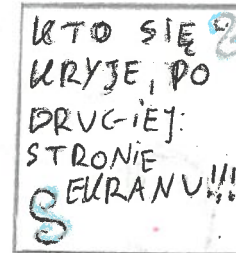 KTO SIĘ
KRYJE, PO
DRUGIEJ:
STRONIE
EKRANU!!!